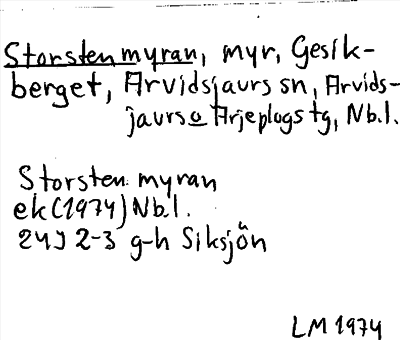 Storstenmyran, myr, Gesik-
berget, Arvidsjaurs sn, Arvids-
jaurs o Arjeplogs tg, Nb.l.
Storstenmyran
ek (1974) Nb.l.
24J 2-3 g-h Siksjön
LM 1974